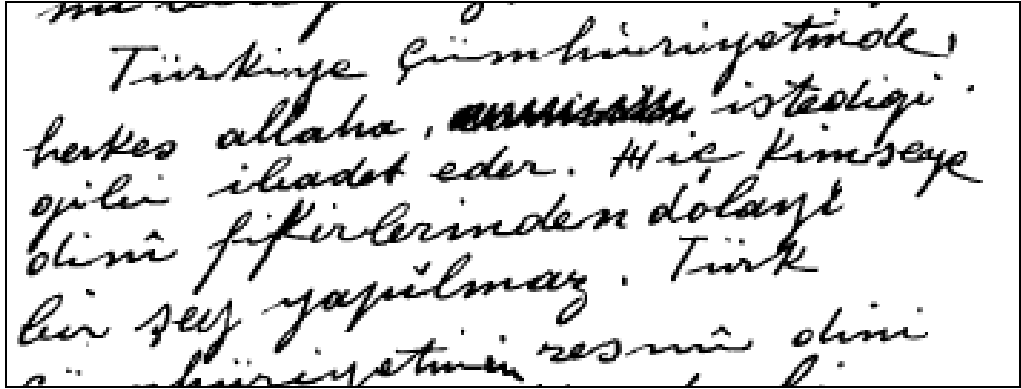 Türkiye Cümhuriyetinde,
herkes allaha, istediği
gibi ibadet eder. Hiç kimseye
dinî fikirlerinden dolayı
bir şey yapılmaz. Türk
Cümhuriyetinin resmî dini